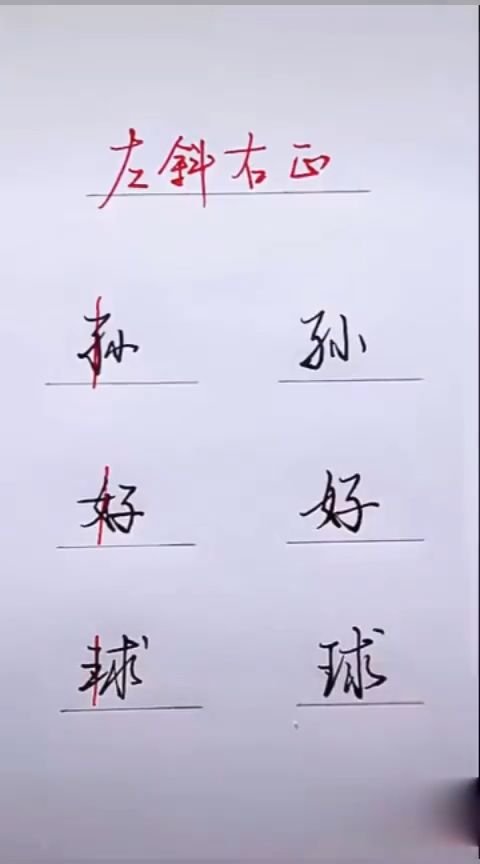 左斜右正
孙 孙
好 好
球 球